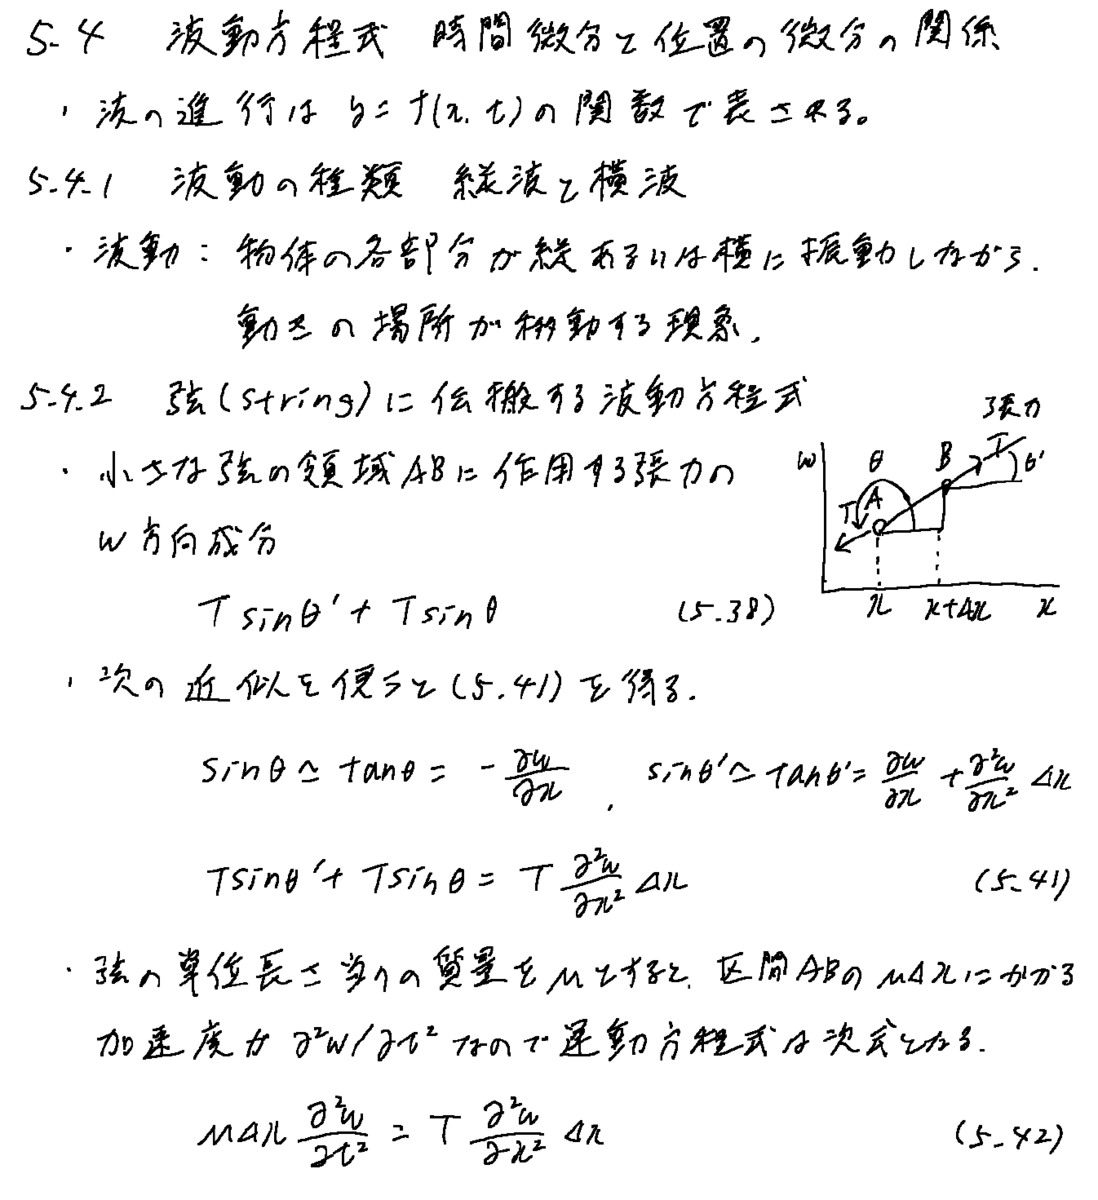 5.4 波動方程式 時間微分と位置の微分の関係
・波の進行は y = f(x, t) の関数で表される。
5.4.1 波動の種類 縦波と横波
・波動: 物体の各部分が縦あるいは横に振動しながら、
動きの場所が移動する現象。
5.4.2 弦(string)に伝搬する波動方程式
張力
w θ B T θ'
T A
x x+Δx x
・小さな弦の領域ABに作用する張力の
w方向成分
T sinθ' + T sinθ (5.38)
・次の近似を使うと(5.41)を得る.
sinθ ≃ tanθ = - ∂w/∂x , sinθ' ≃ tanθ' = ∂w/∂x + ∂²w/∂x² Δx
T sinθ' + T sinθ = T ∂²w/∂x² Δx (5.41)
・弦の単位長さ当りの質量をμとすると、区間ABのμΔxにかかる
加速度が ∂²w/∂t² なので運動方程式は次式となる.
μΔx ∂²w/∂t² = T ∂²w/∂x² Δx (5.42)